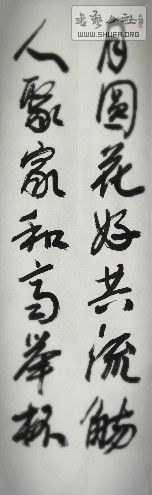 月圆花好共流觞
人聚家和高举杯
書藝公社
WWW.SHUFA.ORG